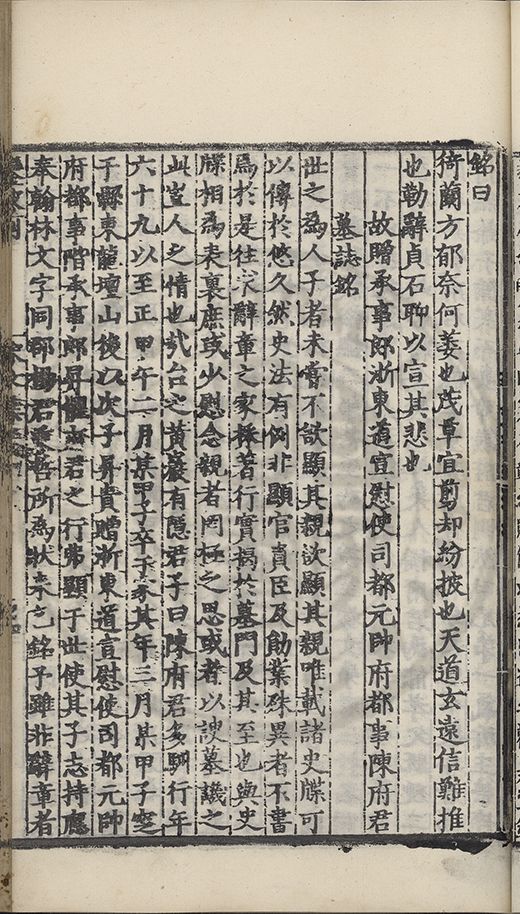 銘曰
猗蘭方郁奈何萎也茂草宜剪却紛披也天道玄遠信難推
也勒辭貞石聊以宣其悲也
故贈承事郎浙東道宣慰使司都元帥府都事陳府君
墓誌銘
世之為人子者未嘗不欲顯其親欲顯其親唯載諸史牒可
以傳於悠久然史法有例非顯官貴臣及勛業殊異者不書
爲於是往求辭章之家稡著行實揭於墓門及其至也與史
牒相為表裏庶或少慰念親者罔極之思或者以諛墓譏之
此豈人之情也㢤台之黃巖有隱君子曰陳府君多馴行年
六十九以至正甲午二月某甲子卒于家其年三月某甲子窆
于縣東龍壇山後以次子昇貴贈浙東道宣慰使司都元帥
府都事階承事郎昇懼府君之行弗顯于世使其子志持應
奉翰林文字同郡君所為狀来乞銘予雖非辭章者